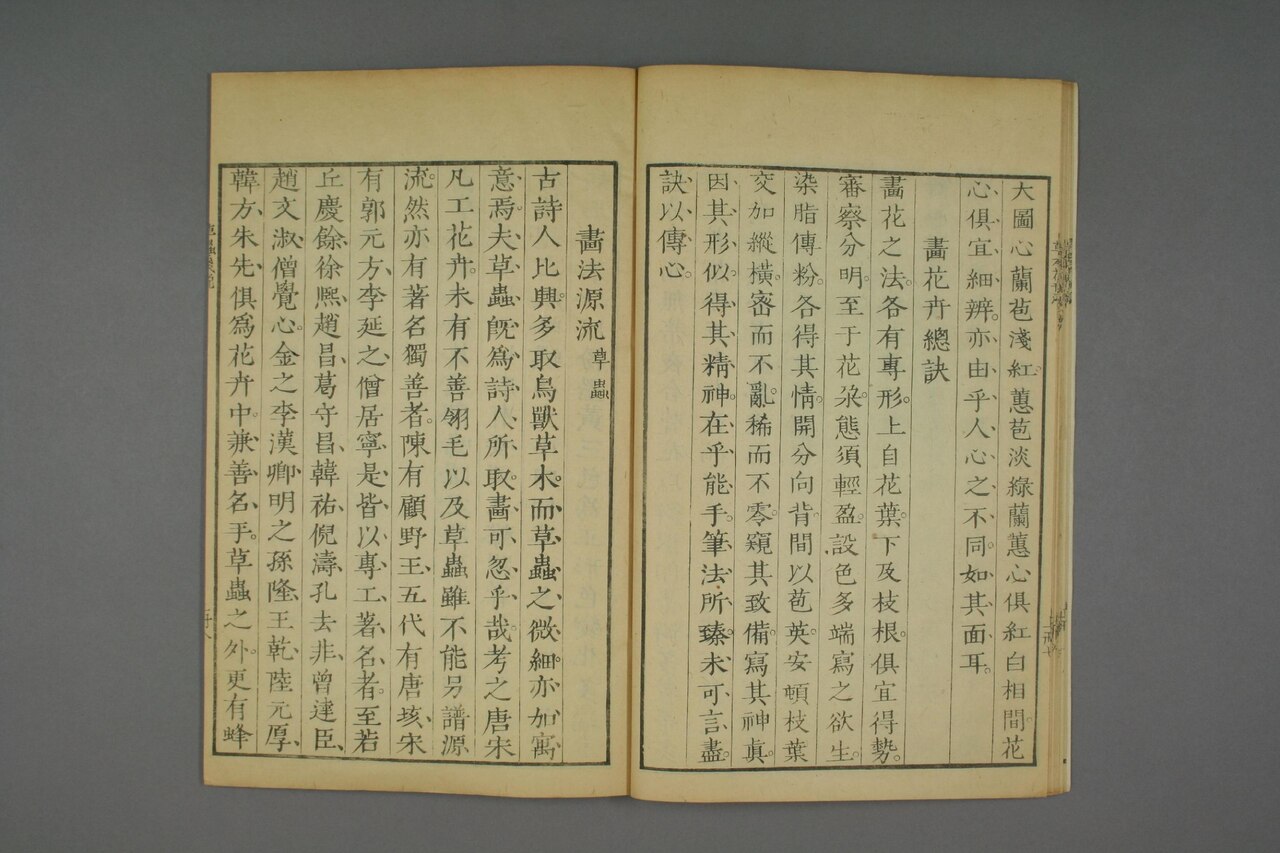 大圖心蘭苞淺紅。蕙苞淡綠蘭蕙心俱紅白相間。花
心俱宜細辨。亦由乎人心之不同。如其面耳。
畫花卉總訣
畫花之法。各有專形。上自花葉下及枝根。俱宜得勢。
審察分明。至于花朶態須輕盈。設色多端寫之欲生。
染脂傳粉。各得其情。開分向背。間以苞英安頓枝葉
交加縱橫。密而不亂。稀而不零。窺其致備。寫其神眞。
因其形似得其精神。在乎能手。筆法所臻。未可言盡。
訣以傳心。
畫法源流 草蟲
古詩人比興。多取鳥獸草木。而草蟲之微細。亦加寓
意焉。夫草蟲旣爲詩人所取。畫可忽乎哉。考之唐宋
凡工花卉。未有不善翎毛以及草蟲。雖不能另譜源
流。然亦有著名獨善者。陳有顧野王、五代有唐垓、宋
有郭元方、李延之、僧居寧、是皆以專工著名者。至若
丘慶餘、徐熈、趙昌、葛守昌、韓祐、倪濤、孔去非、曾達臣、
趙文淑、僧覺心。金之李漢卿、明之孫隆、王乾、陸元厚、
韓方、朱先、俱爲花卉中。兼善名手。草蟲之外。更有蜂